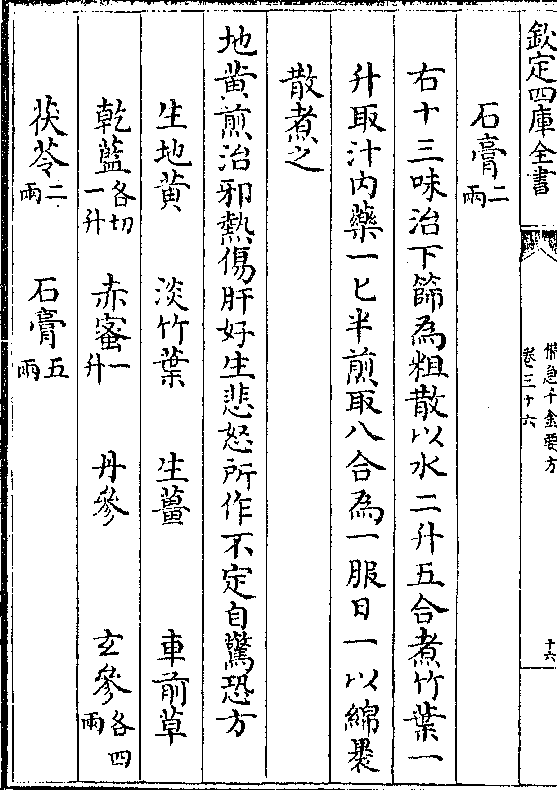 欽定四庫全書
備急千金要方
卷三十六
十六
石膏二兩
右十三味治下篩為粗散以水二升五合煮竹葉一
升取汁内藥一匕半煎取八合為一服日一以綿裹
散煮之
地黄煎治邪熱傷肝好生悲怒所作不定自驚恐方
生地黄 淡竹葉 生薑 車前草
乾藍各切一升 赤蜜一升 丹參 玄參各四兩
茯苓二兩 石膏五兩